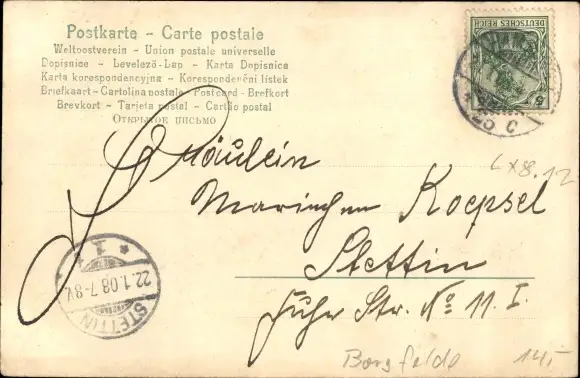 Postkarte - Carte postale
Weltpostverein - Union postale universelle
Dopisnice - Levelező-Lap - Karta Dopisnica
Karta korespondencyjna - Korespondenční lístek
Briefkaart - Cartolina postale - Postcard - Brefkort
Brevkort - Tarjeta postal - Cartão postal
Открытое письмо
DEUTSCHES REICH
5
Fräulein
Marinchen Koepsel
Stettin
Str. No 11. I.
STETTIN
22.1.08.7-8V.
1
Borgfelde
14,-